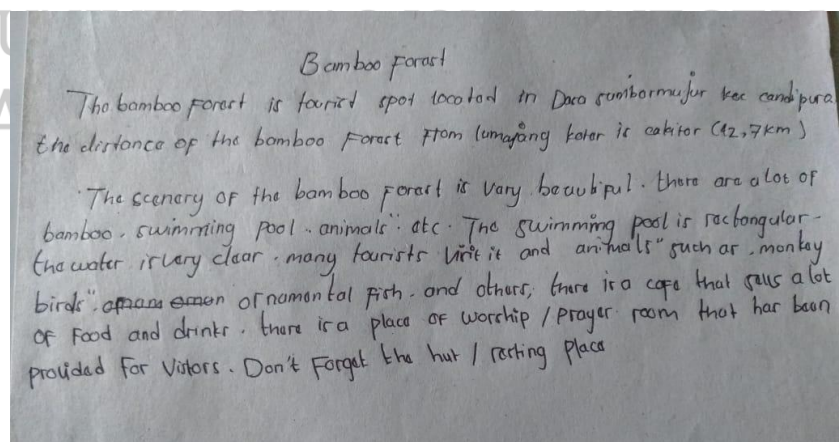 Bamboo Forest
The bamboo Forest is tourist spot located in Desa sumbermujur kec candipura
the distance of the bamboo Forest From lumajang kotar is cakitor (12,7km)
The scenery of the bamboo forest is very beautiful. there are a lot of
bamboo. swimming pool. animals". etc. The swimming pool is rectangular-
the water is very clear. many tourists visit it and animals" such as. monkey
birds". ornamental Fish. and others, there is a cafe that sells a lot
OF Food and drinks. there is a place OF worship / prayer room that has been
provided For Vistors. Don't Forget the hut / resting Place